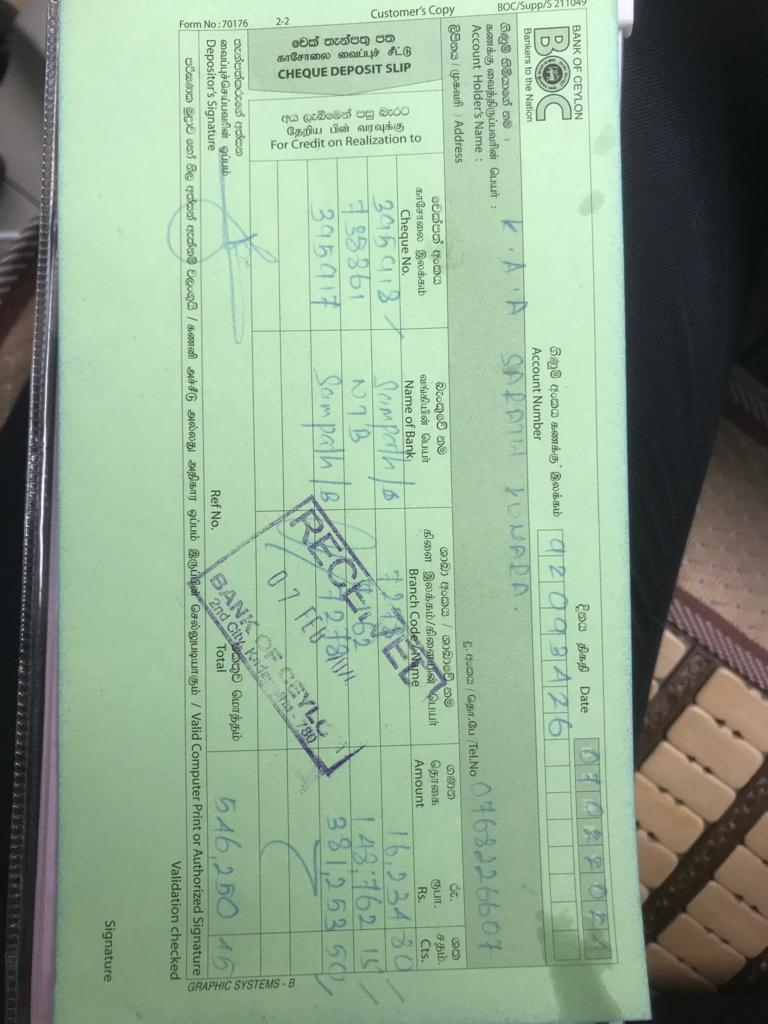 BOC/Supp/S 211049
Customer's Copy
Form No : 70176
2-2
BANK OF CEYLON
BOC
Bankers to the Nation
දිනය திகதி Date
ගිණුම් අංකය கணக்கு இலக்கம்
Account Number
92093426
ගිණුම් හිමියාගේ නම :
கணக்கு வைத்திருப்பவரின் பெயர் :
Account Holder's Name :
K. A. A SARATH KUMARA.
ලිපිනය / முகவரி / Address
දු. අංකය / தொ.பே /Tel.No 0768226607
චෙක් තැන්පතු පත
காசோலை வைப்புச் சீட்டு
CHEQUE DEPOSIT SLIP
අය ලැබීමෙන් පසු බැරට
தேறிய பின் வரவுக்கு
For Credit on Realization to
චෙක්පත් අංකය
காசோலை இலக்கம்
Cheque No.
බැංකුවේ නම
வங்கியின் பெயர்
Name of Bank
ශාඛා අංකය / ශාඛාවේ නම
கிளை இலக்கம்/கிளையின் பெயர்
Branch Code / Name
ගණන
தொகை
Amount
රු.
ரூபா.
Rs.
ශත
சதம்.
Cts.
395918 Sampath/B 16,234 80
738361 NTB 148,762 15
395917 Sampath/B 381,253 50
RECEIVED
07 FEB
BANK OF CEYLON
2nd City
තැන්පත්කරුගේ අත්සන
வைப்புச்செய்பவரின் ஒப்பம்
Depositor's Signature
Ref No.
மொத்தம்
Total
546,250 45
පරිගණක මුද්‍රාව හෝ බල අත්සන් ඇත්නම් වලංගුයි / கணனி அச்சீடு அல்லது அதிகார ஒப்பம் இருப்பின் செல்லுபடியாகும் / Valid Computer Print or Authorized Signature
GRAPHIC SYSTEMS - B
Validation checked
Signature